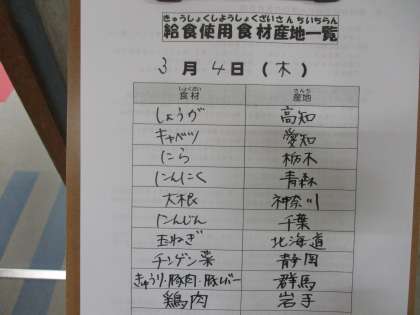 きゅうしょくしようしょくざいさんちいちらん
給食使用食材産地一覧
3月4日(木)
しょくざい さんち
食材 産地
しょうが 高知
キャベツ 愛知
にら 栃木
にんにく 青森
大根 神奈川
にんじん 千葉
玉ねぎ 北海道
チンゲン菜 静岡
きゅうり・豚肉・豚レバー 群馬
鶏肉 岩手